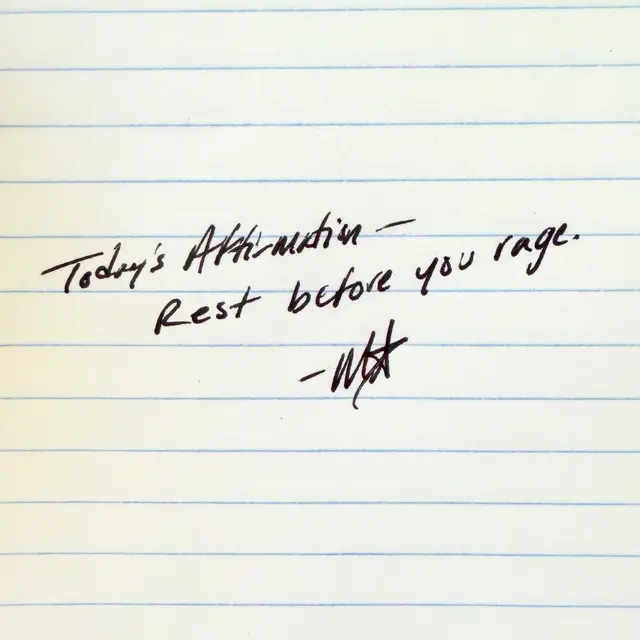 Today's Affirmation —
Rest before you rage.